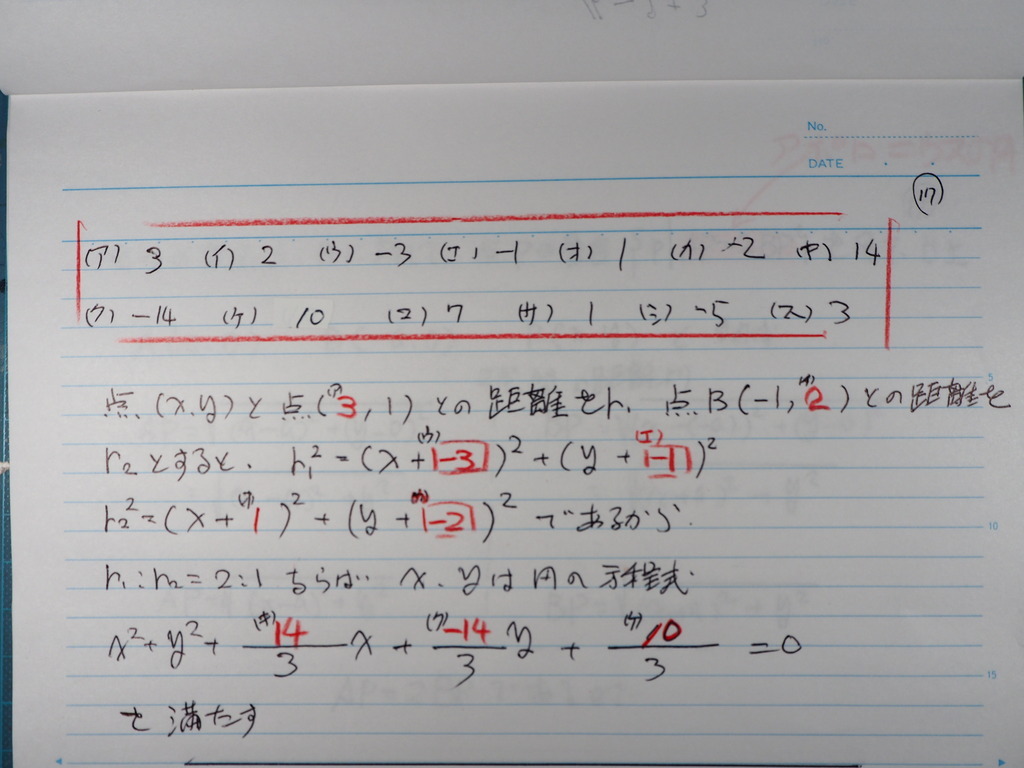 No.
DATE
(117)
(ア) 3 (イ) 2 (ウ) -3 (エ) -1 (オ) 1 (カ) -2 (キ) 14
(ク) -14 (ケ) 10 (コ) 7 (サ) 1 (シ) -5 (ス) 3
点(x.y)と点((ア)3, 1)との距離をr1 点B(-1,(イ)2)との距離を
r2とすると. r1² = (x+(ウ)-3)² + (y+(エ)-1)²
r2² = (x+(オ)1)² + (y+(カ)-2)² であるから
r1:r2=2:1 ならば x.yは円の方程式
x²+y²+(キ)14/3 x + (ク)-14/3 y + (ケ)10/3 =0
を満たす
5
10
15